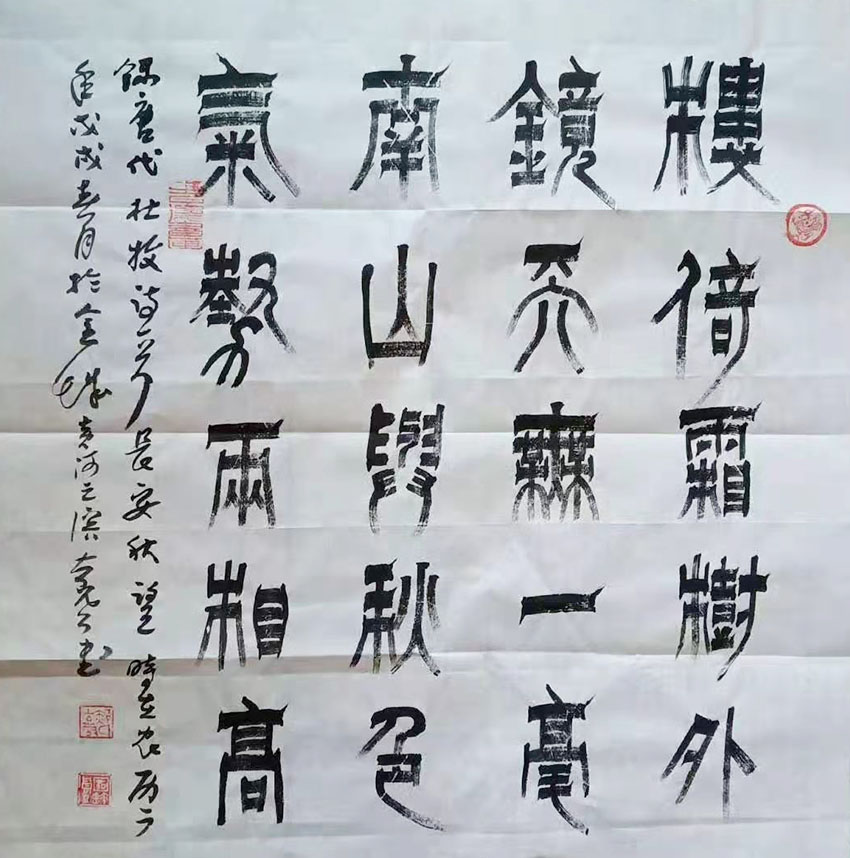 樓倚霜樹外
鏡天無一毫
南山與秋色
氣勢兩相高
錄唐代杜牧詩一首長安秋望時在农历
年戊戌春月於金城黄河之滨 书